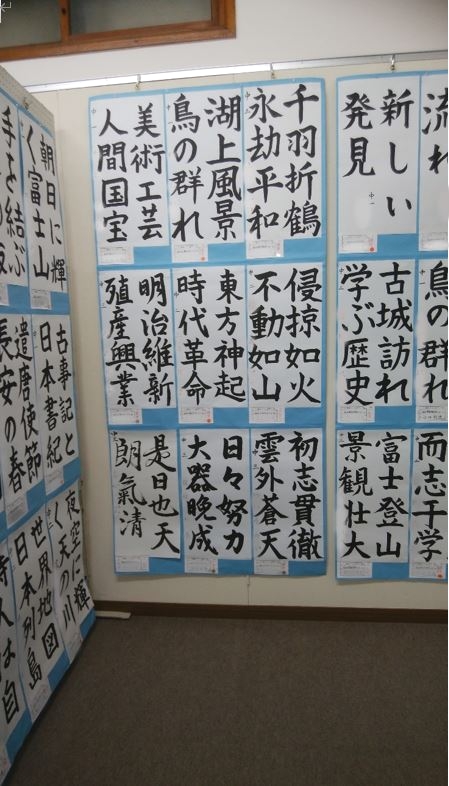 流れ
新しい
発見
千羽折鶴
永劫平和
湖上風景
鳥の群れ
美術工芸
人間国宝
鳥の群れ
古城訪れ
学ぶ歴史
侵掠如火
不動如山
東方神起
時代革命
明治維新
殖産興業
而志于学
富士登山
景観壮大
初志貫徹
雲外蒼天
日々努力
大器晩成
是日也天
朗氣清
朝日に輝
く富士山
手を結ぶ
古事記と
日本書紀
遣唐使節
長安の春
夜空に輝
く天の川
世界地図
日本列島